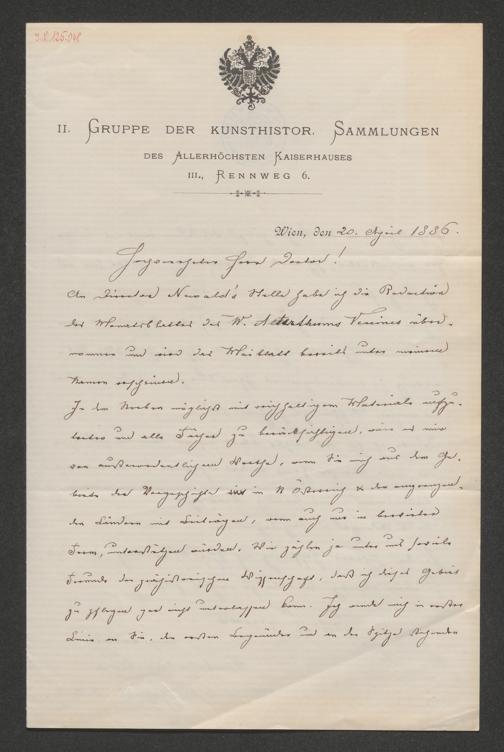 II. GRUPPE DER KUNSTHISTOR. SAMMLUNGEN
DES ALLERHÖCHSTEN KAISERHAUSES
III., RENNWEG 6.
Wien, den 20. April 1886.
Hochverehrter Herr Doctor!
An Director Newald's Stelle habe ich die Redaction
des Monatsblattes des W. Alterthums Vereines über-
nommen und wird das Maiblatt bereits unter meinem
Namen erscheinen.
In dem Streben möglichst mit reichhaltigem Materiale aufzu-
treten und alle Fächer zu berücksichtigen, wäre es mir
von außerordentlichem Werthe, wenn Sie mich aus dem Ge-
biete der Vorgeschichte in N Österreich & den angrenzen-
den Ländern mit Beiträgen, wenn auch nur in
Form, unterstützen würden. Wir zählen ja unter uns so viele
Freunde der prähistorischen Wissenschaft, daß ich dieses Gebiet
zu pflegen gar nicht unterlassen kann. Ich wende mich in erster
Linie an Sie, den ersten und an der Spitze stehenden